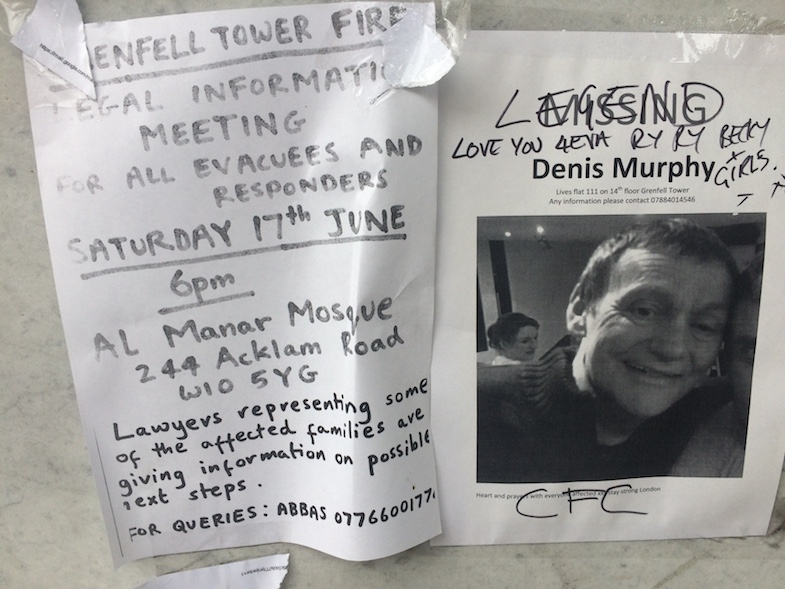 GRENFELL TOWER FIRE
LEGAL INFORMATION
MEETING
FOR ALL EVACUEES AND
RESPONDERS
SATURDAY 17th JUNE
6pm
AL Manar Mosque
244 Acklam Road
W10 5YG
Lawyers representing some
of the affected families are
giving information on possible
next steps.
FOR QUERIES: ABBAS 0776600177
MISSING
LEGEND
LOVE YOU 4EVA RY RY BECKY
GIRLS.
Denis Murphy
Lives flat 111 on 14th floor Grenfell Tower
Any information please contact 07884014546
Heart and prayers with everyone affected xx stay strong London
CFC